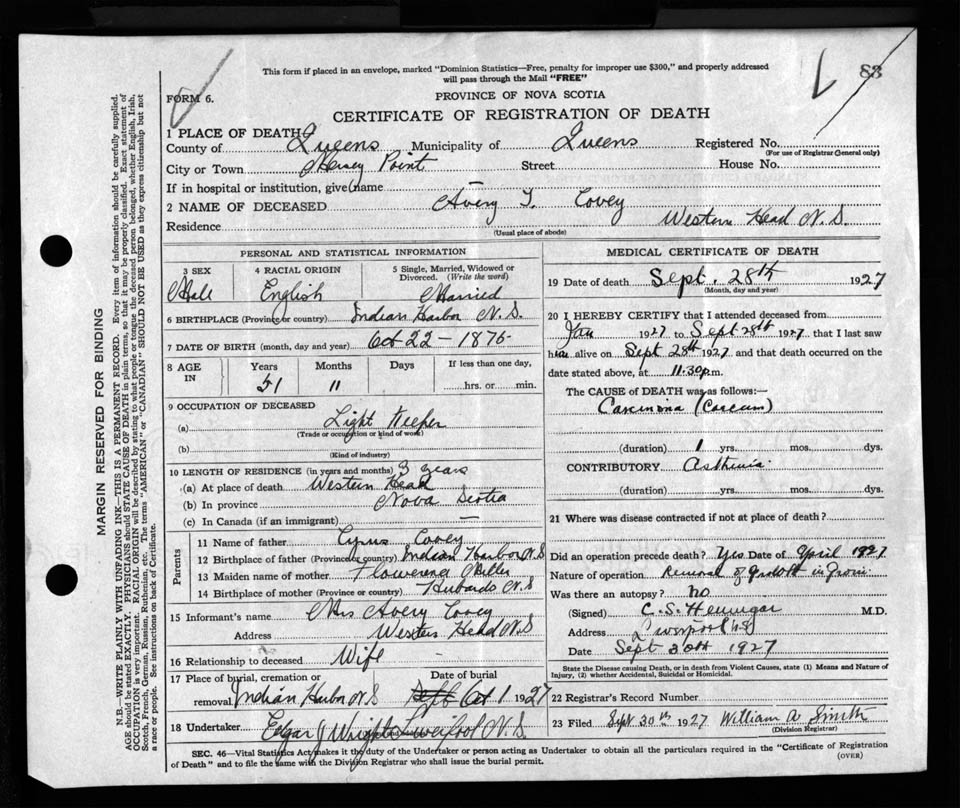 This form if placed in an envelope, marked "Dominion Statistics—Free, penalty for improper use $300," and properly addressed
will pass through the Mail "FREE"
83
FORM 6.
PROVINCE OF NOVA SCOTIA
CERTIFICATE OF REGISTRATION OF DEATH
1 PLACE OF DEATH
County of Queens Municipality of Queens Registered No.
(For use of Registrar General only)
City or Town Point Street House No.
If in hospital or institution, give name —
2 NAME OF DECEASED Avery T. Covey
Residence Western Head N.S.
(Usual place of abode)
PERSONAL AND STATISTICAL INFORMATION
3 SEX 4 RACIAL ORIGIN 5 Single, Married, Widowed or Divorced. (Write the word)
Male English Married
6 BIRTHPLACE (Province or country) Indian Harbor N.S.
7 DATE OF BIRTH (month, day and year) Oct 22 – 1875
8 AGE IN Years Months Days If less than one day,
51 11 hrs. or min.
9 OCCUPATION OF DECEASED
(a) Light Keeper
(Trade or occupation or kind of work)
(b)
(Kind of industry)
10 LENGTH OF RESIDENCE (in years and months) 3 years
(a) At place of death Western Head
(b) In province Nova Scotia
(c) In Canada (if an immigrant) —
Parents
11 Name of father Cyrus Covey
12 Birthplace of father (Province or country) Indian Harbor N.S
13 Maiden name of mother Miller
14 Birthplace of mother (Province or country) Hubards N.S
15 Informant's name Mrs Avery Covey
Address Western Head N.S
16 Relationship to deceased Wife
17 Place of burial, cremation or removal Indian Harbor N.S Date of burial Oct 1 1927
18 Undertaker Edgar J Wright Liverpool N.S.
MEDICAL CERTIFICATE OF DEATH
19 Date of death Sept. 28th 1927
(Month, day and year)
20 I HEREBY CERTIFY that I attended deceased from
1927 to Sept 28th 1927, that I last saw
him alive on Sept 28th 1927 and that death occurred on the
date stated above, at 11.30 p.m.
The CAUSE of DEATH was as follows:—
Carcinoma (Caecum)
(duration) 1 yrs. mos. dys.
CONTRIBUTORY Asthenia
(duration) yrs. mos. dys.
21 Where was disease contracted if not at place of death?
Did an operation precede death? Yes Date of April 1927
Nature of operation Removal of growth in
Was there an autopsy? no
(Signed) C. S. Hennigar M.D.
Address Liverpool NS
Date Sept 30th 1927
State the Disease causing Death, or in death from Violent Causes, state (1) Means and Nature of Injury, (2) whether Accidental, Suicidal or Homicidal.
22 Registrar's Record Number
23 Filed Sept 30th 1927 William A Smith
(Division Registrar)
SEC. 46—Vital Statistics Act makes it the duty of the Undertaker or person acting as Undertaker to obtain all the particulars required in the "Certificate of Registration
of Death" and to file the same with the Division Registrar who shall issue the burial permit.
(OVER)
MARGIN RESERVED FOR BINDING
N.B.—WRITE PLAINLY WITH UNFADING INK—THIS IS A PERMANENT RECORD. Every item of information should be carefully supplied.
AGE should be stated EXACTLY. PHYSICIANS should STATE CAUSE OF DEATH in plain terms, so that it may be properly classified. Exact statement of
OCCUPATION is very important. RACIAL ORIGIN will be described by stating to what people or tongue the deceased person belonged, whether English, Irish,
Scotch, French, German, Russian, Ruthenian, etc. The terms "AMERICAN" or "CANADIAN" SHOULD NOT BE USED as they express citizenship but not
a race or people. See instructions on back of Certificate.